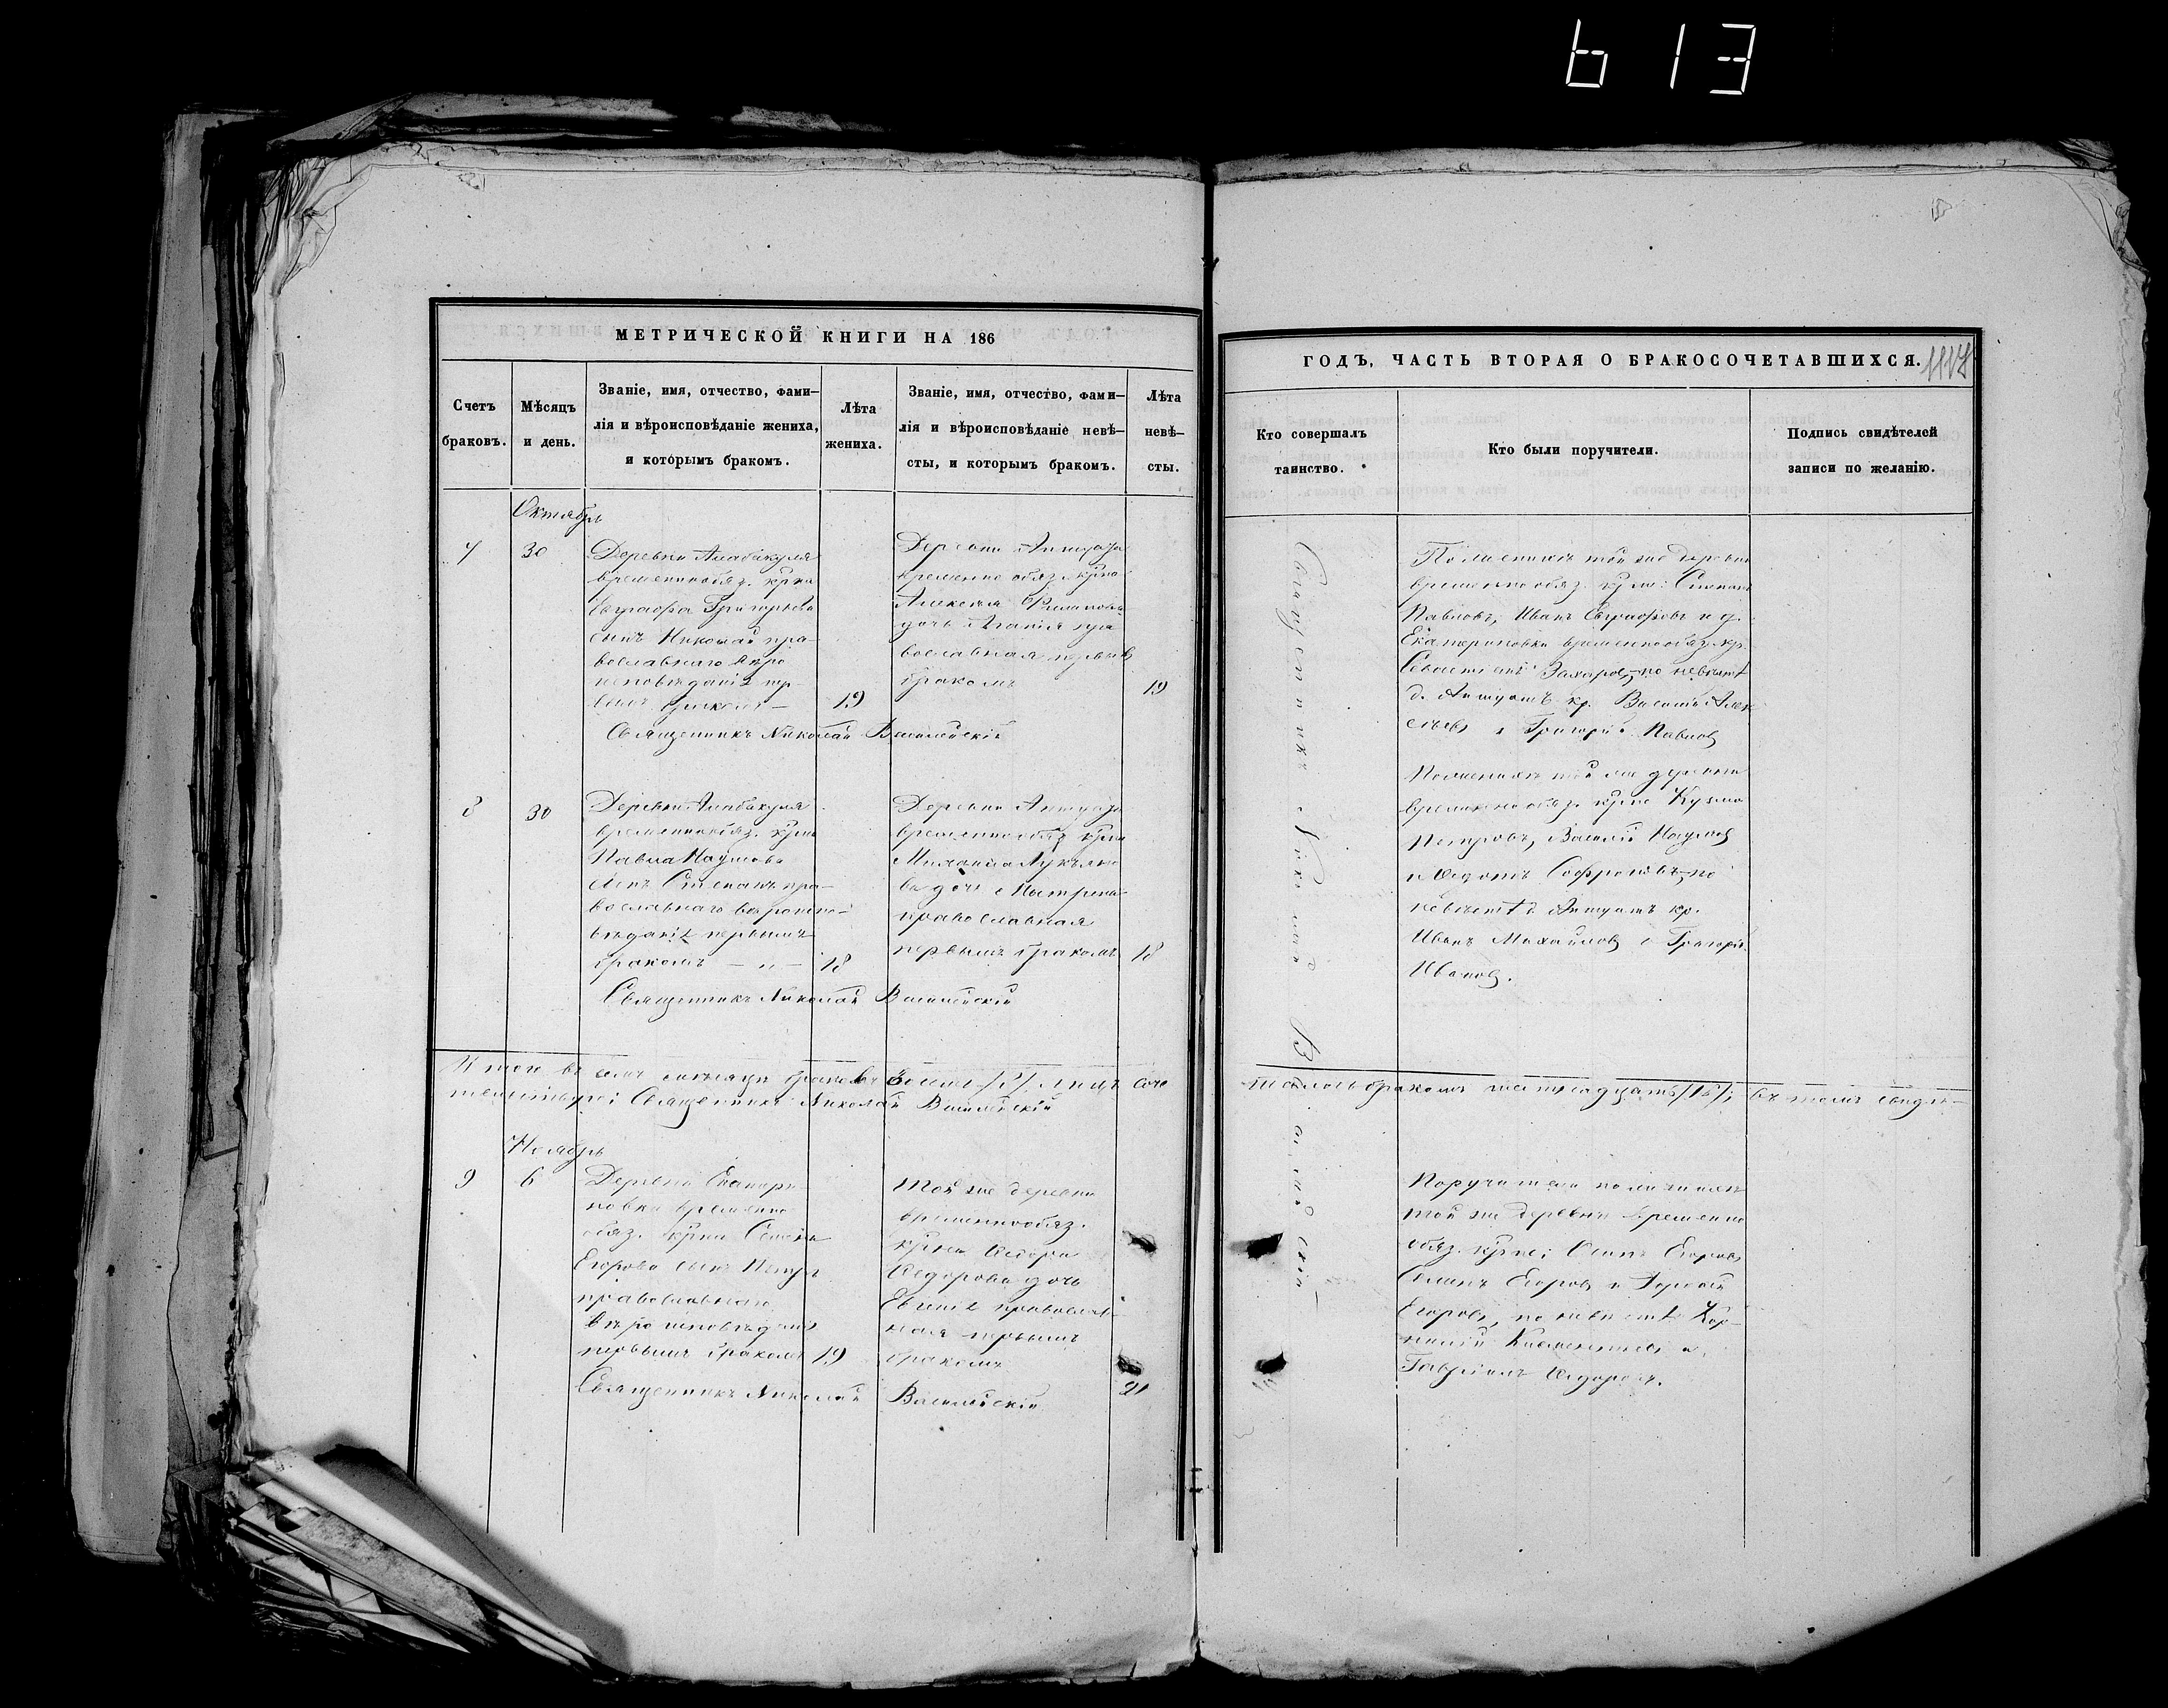 613
МЕТРИЧЕСКОЙ КНИГИ НА 186
Счетъ браковъ.
Мѣсяцъ и день.
Званіе, имя, отчество, фами-
лія и вѣроисповѣданіе жениха,
и которымъ бракомъ.
Лѣта жениха.
Званіе, имя, отчество, фами-
лія и вѣроисповѣданіе невѣ-
сты, и которымъ бракомъ.
Лѣта невѣ-
сты.
Октябрь
7
30
Деревни
временнообяз. крна
Григорьева
сынъ Николай пра-
вославнаго вѣро
исповѣданія пер-
вымъ бракомъ —
19
Деревни
временно обяз. крна
Алексѣя Филипова
дочь Агапія пра
вославная первымъ
бракомъ
19
Священникъ Николай
8
30
Деревни
временнообяз. крна
Павла Наумова
сынъ Степанъ пра-
вославнаго вѣроиспо-
вѣданія первымъ
бракомъ — „ —
18
Деревни
временнообяз крна
Михаила Лукъяно
ва дочь Матрена
православная
первымъ бракомъ
18
Священникъ Николай
Итого въ семъ мѣсяцѣ браковъ восемь /8/ лицъ соче
тельствуетъ: Священникъ Николай
Ноябрь
9
6
Деревни Екатери
новки временно
обяз. крна Семена
Егорова сынъ Петръ
православнаго
вѣроисповѣданія
первымъ бракомъ
19
Той же деревни
временнообяз.
крна Ѳедора
Ѳедорова дочь
Евгенія православ-
ная первымъ
бракомъ
21
Священникъ Николай
ГОДЪ, ЧАСТЬ ВТОРАЯ О БРАКОСОЧЕТАВШИХСЯ.
Кто совершалъ
таинство.
Кто были поручители.
Подпись свидѣтелей
записи по желанію.
Священникъ Николай
По женихѣ той же деревни
временно обяз. крне: Степанъ
Павловъ, Иванъ и д.
Екатериновки временнообяз. кр.
Захаровъ, по невѣстѣ
д. кр. Алек
сѣевъ и Григорій Павловъ
По женихѣ той же деревни
временно обяз. крне Кузма
Петровъ, Василій Наумовъ
и Софроновъ, по
невѣстѣ д. кр.
Иванъ Михайловъ и Григорій
Ивановъ.
шестнадцать /16/; въ томъ свидѣ-
Поручители по женихѣ
той же деревни временно
обяз. крне: Осипъ Егоровъ
Егоровъ и
Егоровъ, по невѣстѣ Кор-
нилій Климентьевъ и
Гавріилъ Ѳедоровъ.